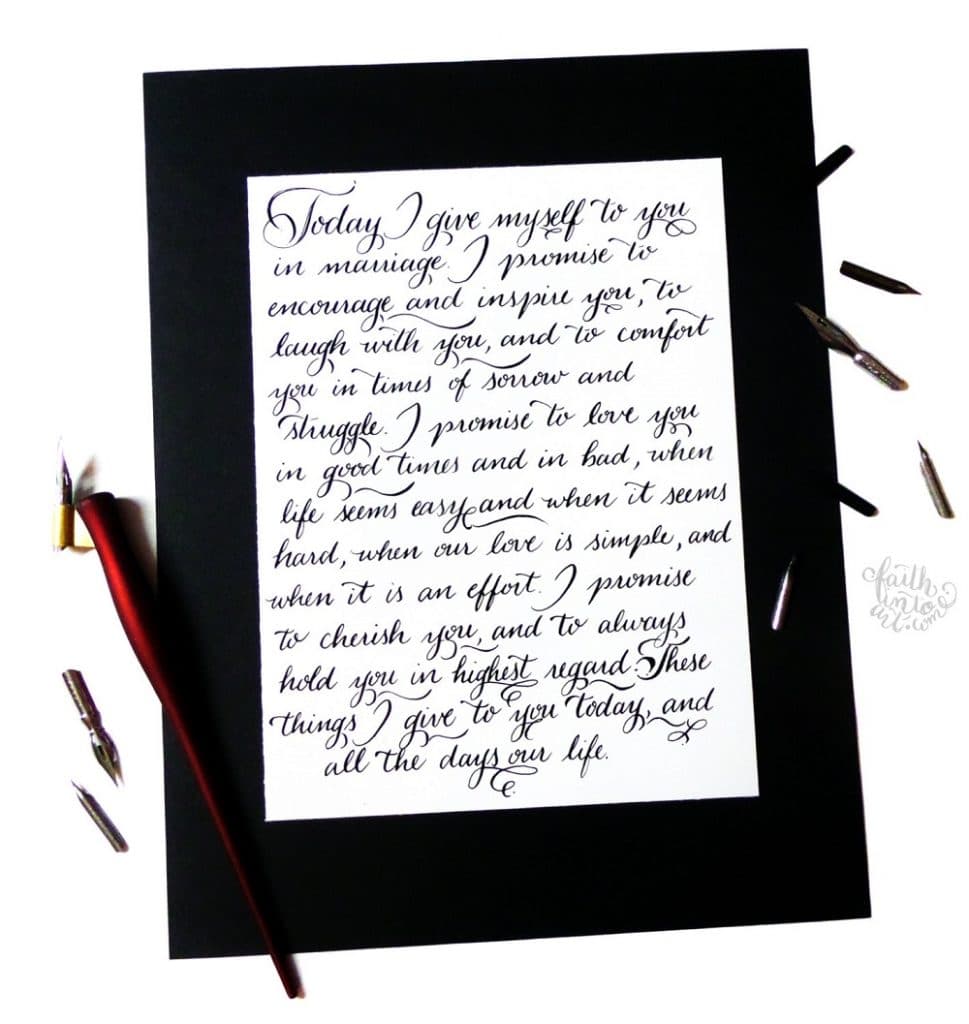 Today I give myself to you
in marriage. I promise to
encourage and inspire you, to
laugh with you, and to comfort
you in times of sorrow and
struggle. I promise to love you
in good times and in bad, when
life seems easy and when it seems
hard, when our love is simple, and
when it is an effort. I promise
to cherish you, and to always
hold you in highest regard. These
things I give to you today, and
all the days our life.
faith
into
art.com